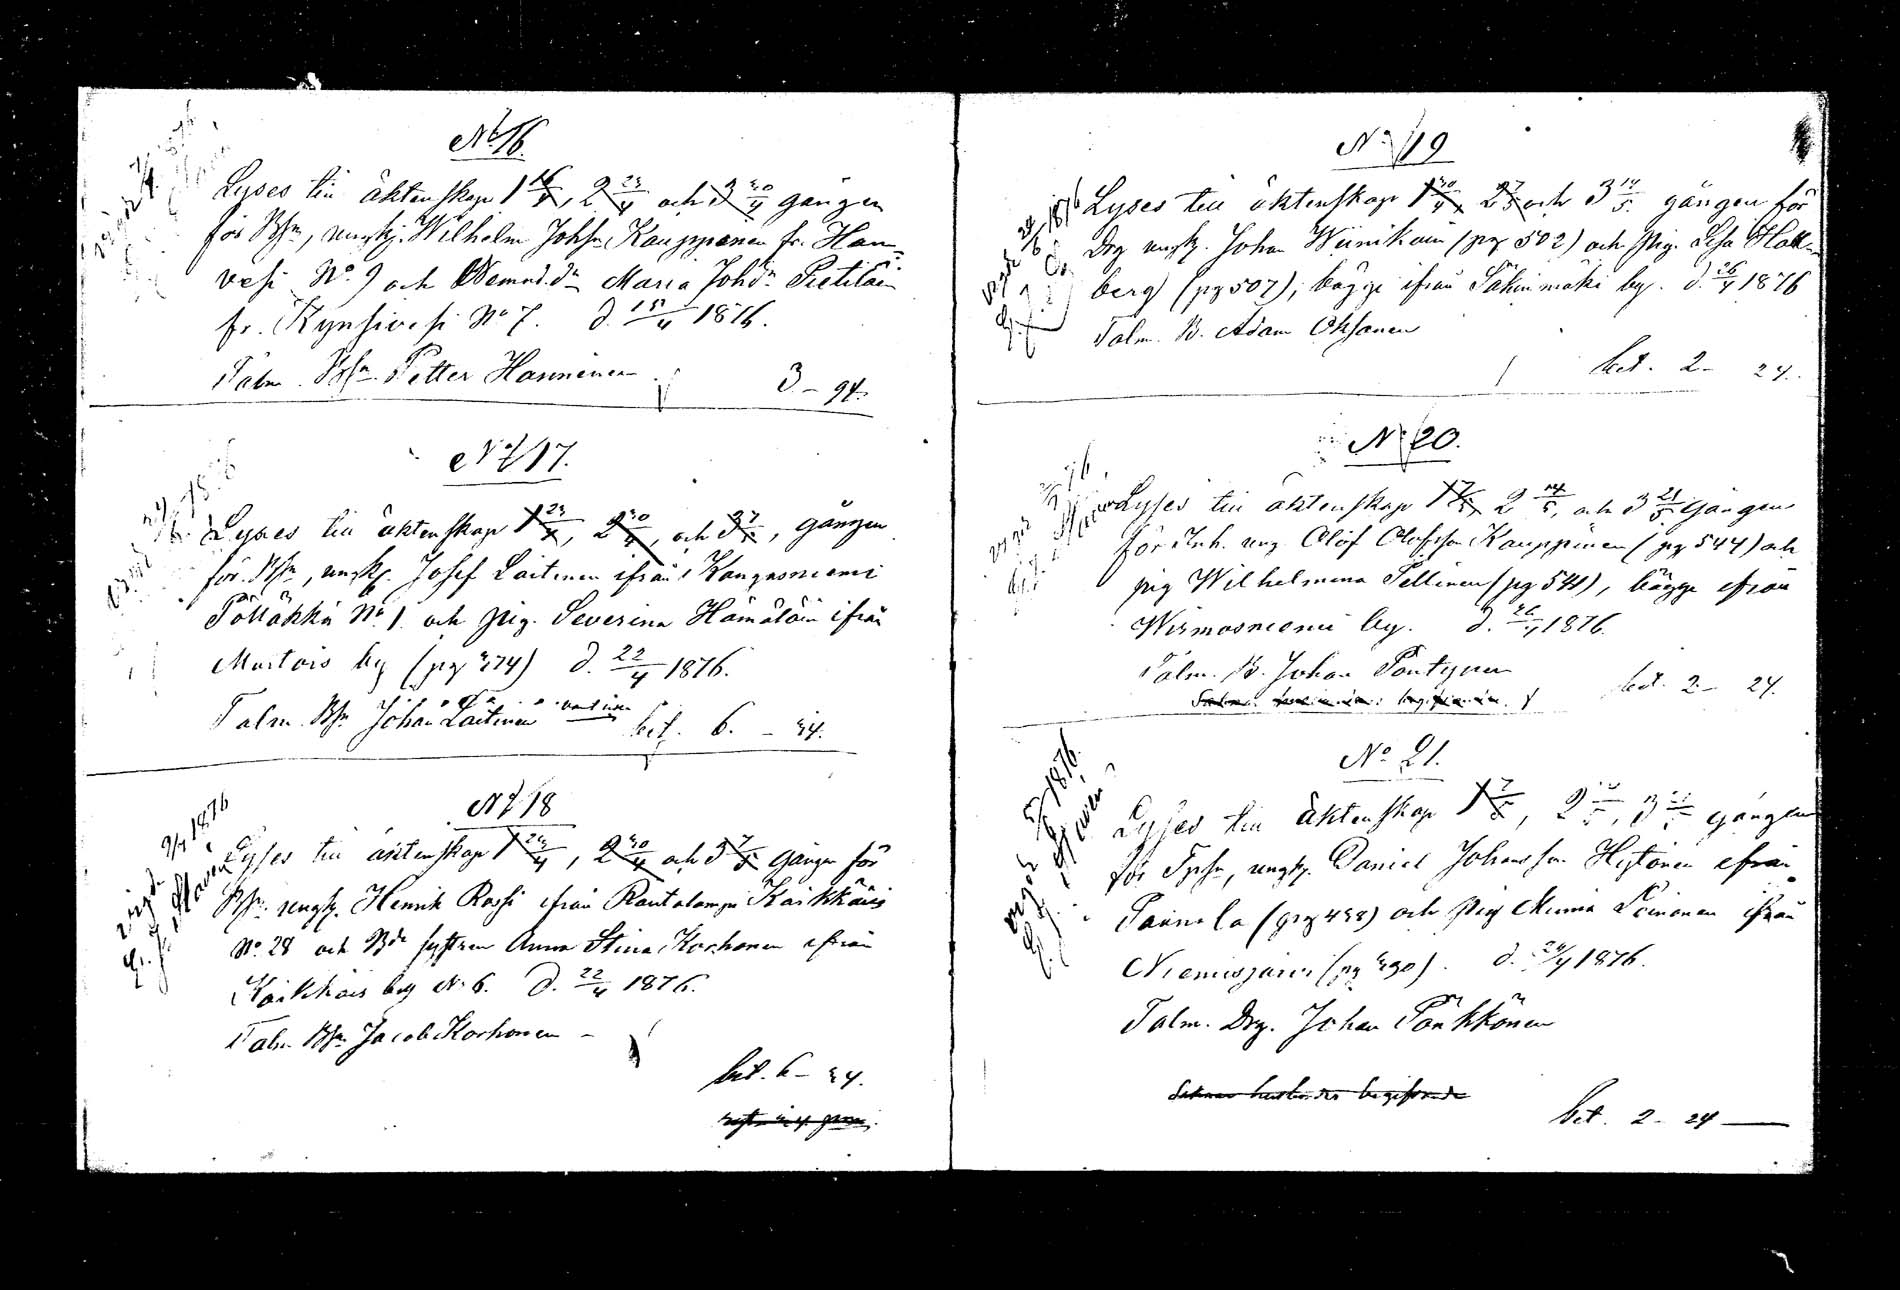 No 16.
Lyses till äktenskap 1 16/4, 2 23/4 och 3 30/4 gången
för Bsn, ungk. Wilhelm Johsn Kauppinen fr. Han-
vesi No 9 och Bemnd.dr Maria Johdr Pietiläin
fr. Kynsivesi No 7. d. 15/4 1876.
Talm. Bsn Petter Hänninen
3 - 94.
No 17.
Lyses till äktenskap 1 23/4, 2 30/4, och 3 7/5, gången
för Bsn, ungk. Josef Laitinen ifrån Kangasniemi
Pölläkkä No 1 och pig. Severina Hämäläin ifrån
Murtois by (pg 374) d. 22/4 1876.
Talm. Bsn Johan Laitinen
bet. 6. - 34.
No 18
Lyses till äktenskap 1 23/4, 2 30/4 och 3 7/5 gången för
Bsn ungk. Henrik Rossi ifrån Rautalampi Kärkkäis
No 28 och Bde systren Anna Stina Korhonen ifrån
Kärkkäis by No 6. d. 22/4 1876.
Talm Bsn Jacob Korhonen -
bet. 6 - 34.
vigde 9/7 1876
No 19
Lyses till äktenskap 1 30/4, 2 7/5 och 3 14/5 gången för
Drg ungk. Johan Wiinikain (pg 502) och pig. Lisa Hall-
berg (pg 507), bägge ifrån Säkinmäki by. d. 26/4 1876
Talm. B. Adam Oksanen
bet. 2 - 24.
vigde 24/6 1876
No 20.
Lyses till äktenskap 1 7/5, 2 14/5, och 3 21/5 gången
för Inh. ung Olof Olofsson Kauppinen (pg 544) och
pig Wilhelmina Pellinen (pg 541), bägge ifrån
Wirmasniemi by. d. 26/4 1876.
Talm. B. Johan Pöntynen
bet. 2 - 24.
No 21.
Lyses till äktenskap 1 7/5, 2 14/5, 3 21/5 gången
för Tpsn, ungk. Daniel Johansson Hytönen ifrån
Paanala (pg 438) och pig Minna Poinonen ifrån
Niemisjärvi (pg 390). d. 29/4 1876.
Talm. Drg. Johan Pänkkönen
bet. 2 - 24
vigde 1876.